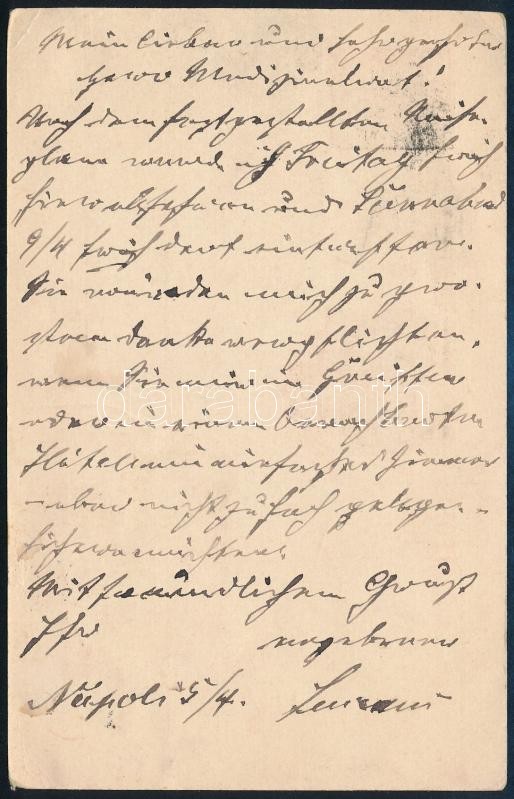 Mein lieber und sehr geehrter
Herr Medizinalrat!
Nach dem festgestellten Reise-
plane werde ich Freitag früh
hier abfahren und Sonnabend
9/4 früh dort eintreffen.
Sie würden mich zu gro-
ssem Danke verpflichten,
wenn Sie mir im
oder in einem benachbarten
Hôtel ein einfaches Zimmer
– aber nicht zu hoch gelegen –
sichern möchten.
Mit freundlichem Gruß
Ihr ergebener
Napoli 5/4.
darabanth